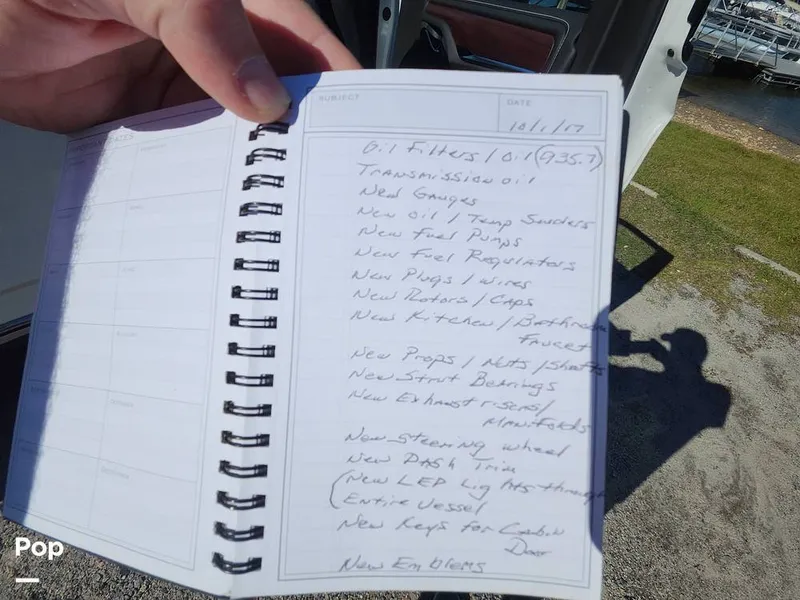 SUBJECT
DATE
10/1/17
Oil Filters / Oil (935.7)
Transmission oil
New Gauges
New oil / Temp Senders
New Fuel Pumps
New Fuel Regulators
New Plugs / wires
New Rotors / Caps
New Kitchen / Bathroom
Faucet
New Props / Nuts / Shafts
New Strut Bearings
New Exhaust risers /
Manifolds
New Steering wheel
New Dash Trim
(New LED Lights through
Entire vessel
New Keys for Cabin
Door
New Emblems
Pop